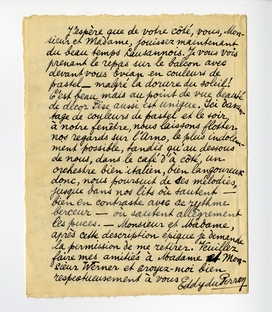 J'espère que de votre côté, vous, Mon-
sieur et Madame, jouissez maintenant
du beau temps Lausannois. Je vous vois
prenant le repas sur le balcon avec
devant vous Evian en couleurs de
pastel — malgré la dorure du soleil!
C'est beau mais au point de vue beauté
de décor Pise aussi est unique. Ici davan-
tage de couleurs de pastel et le soir,
à notre fenêtre, nous laissons flotter
nos regards sur l'Arno, le plus indolem-
ment possible, tandis qu'au dessous
de nous, dans le café d'à côté, un
orchestre bien italien, bien langoureux
donc, nous poursuit de ses mélodies
jusque dans nos lits où sautent —
bien en contraste avec ce rythme
berceur — où sautent allégrement
les puces. — Monsieur et Madame,
après cette description épique je demande
la permission de me retirer. Veuillez
faire mes amitiés à Madame et Mon-
sieur Werner et croyez-moi bien
respectueusement à vous Eddy du Perron